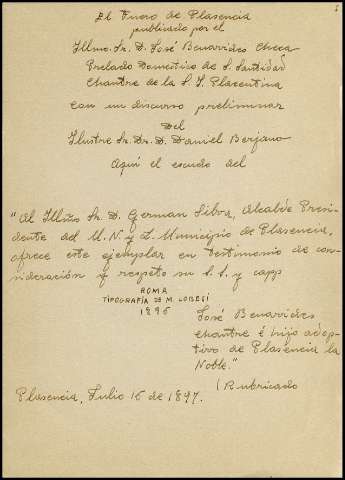 El Fuero de Plasencia
publicado por el
Illmo. Sr. D. José Benavides Checa
Prelado Doméstico de S. Santidad
Chantre de la S. I. Placentina
con un discurso preliminar
Del
Ilustre Sr. Dr. D. Daniel Berjano
Aquí el escudo del
"Al Illmo Sr. D. German Silva, Alcalde Presi-
dente del M. N. y L. Municipio de Plasencia,
ofrece este ejemplar en testimonio de con-
sideración y respeto su S. S. y capp
ROMA
TIPOGRAFÍA DE M. LOBESI
1896
José Benavides
chantre é hijo adop-
tivo de Plasencia la
Noble."
(Rubricado
Plasencia, Julio 16 de 1897.